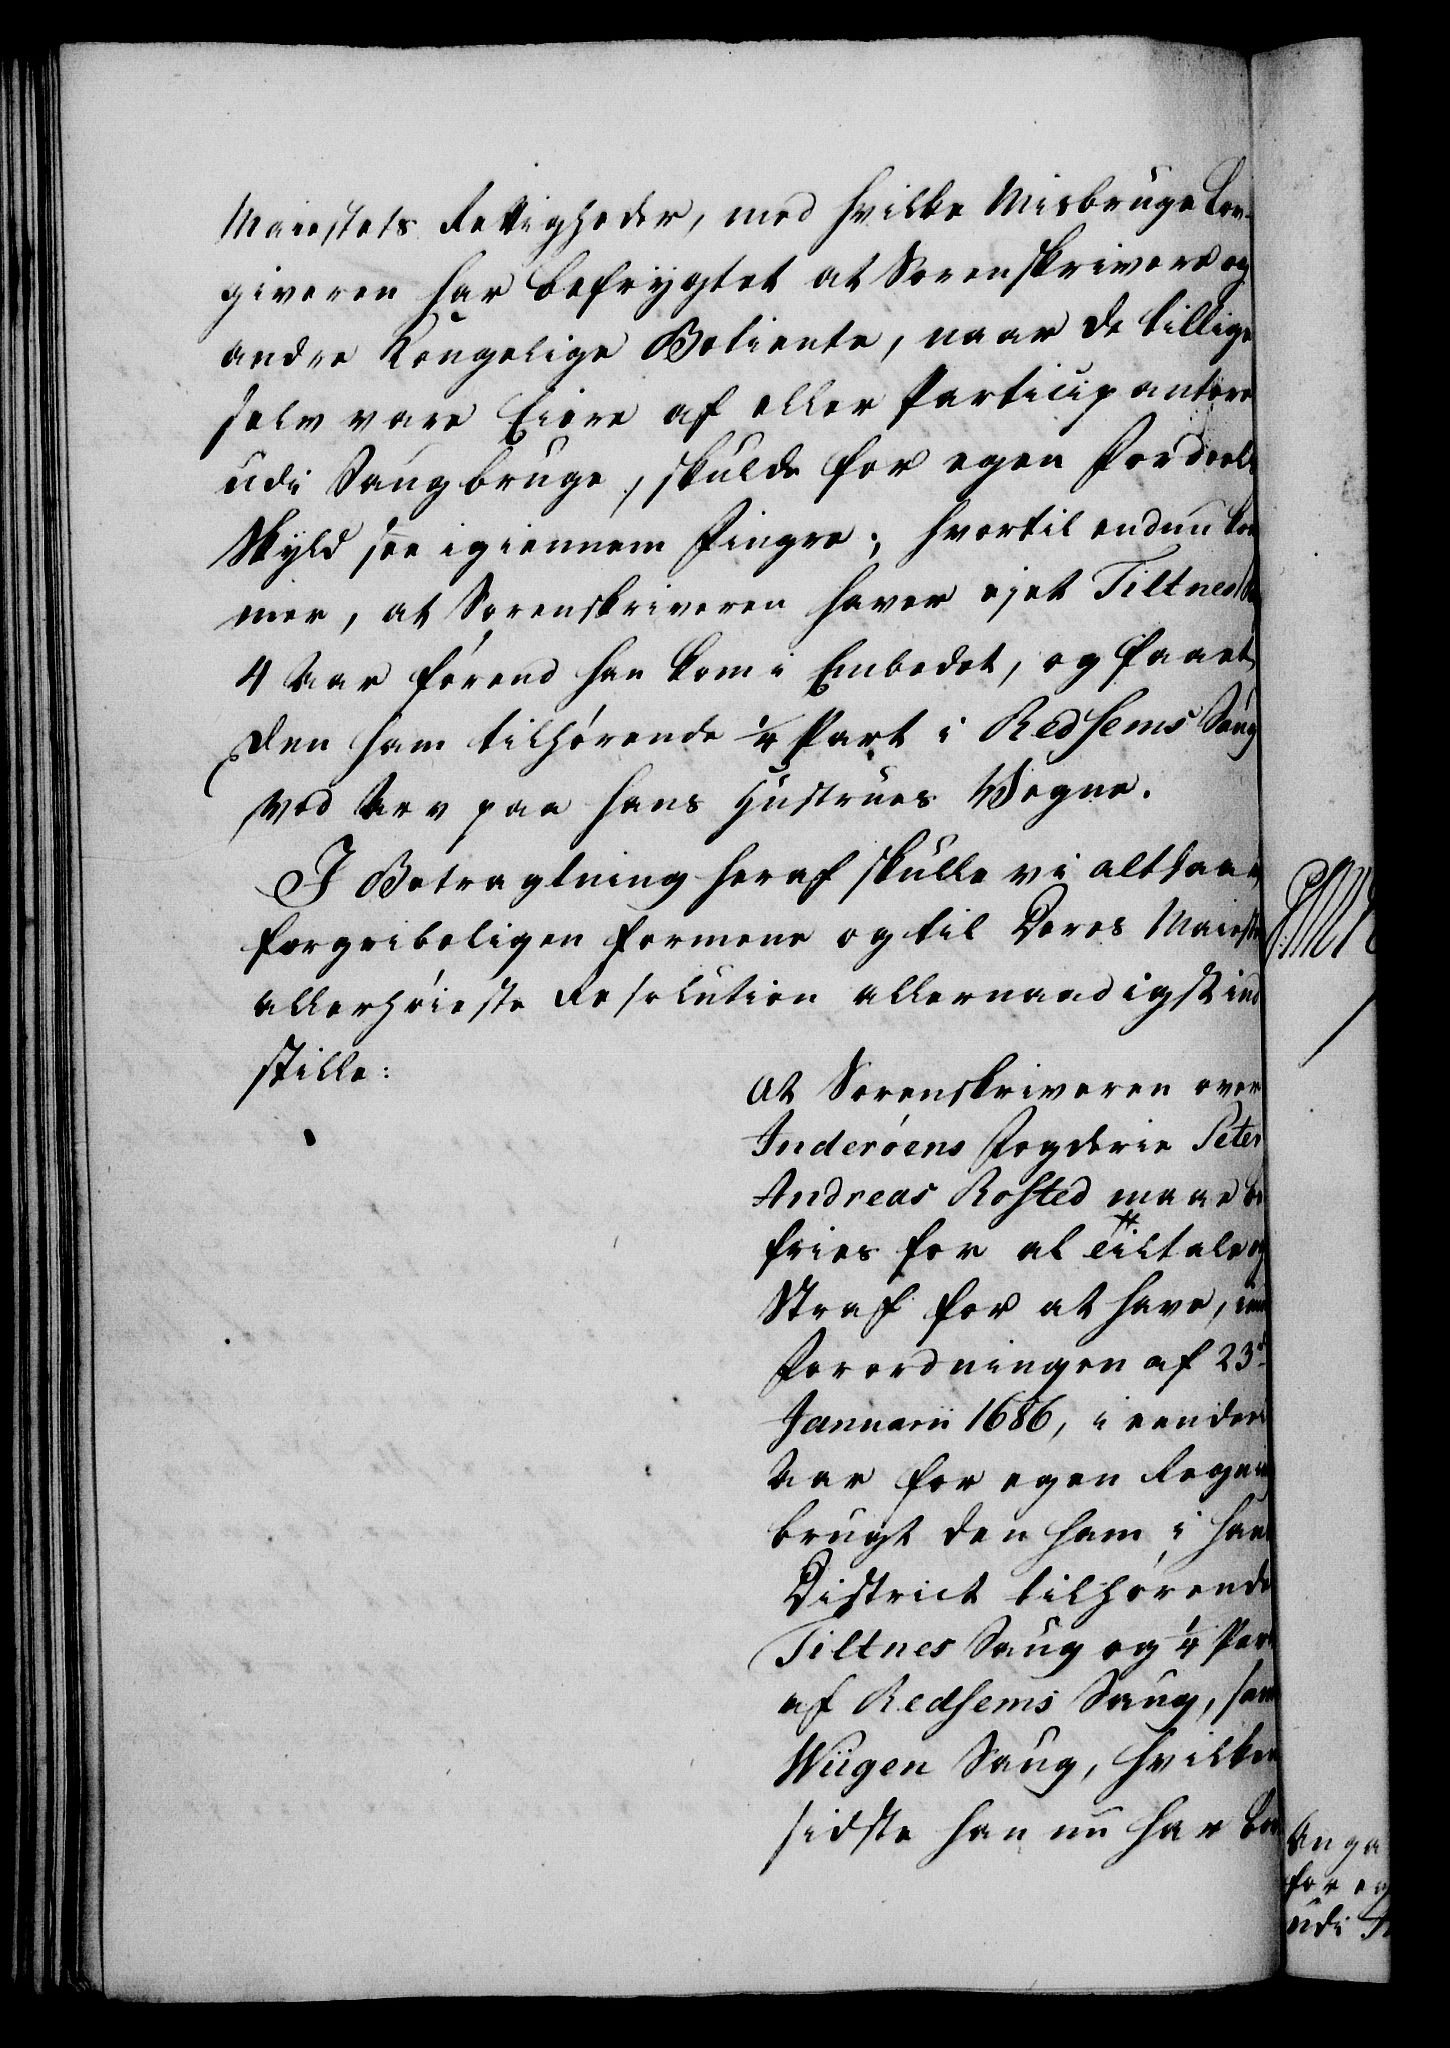 Maiestets Rettigheder, med hvilke Misbruge Lov-
giveren har befrygtet at Sorenskrivere og
andre Kongelige Betiente, naar de tillige
selv vare Eiere af eller Participantere
udi Saugbruge, skulde for egen Fordeels
Skyld see igiennem Fingre; hvortil endnu kom
mer, at Sorenskriveren haver ejet Tiltnes
4 Aar förend han kom i Embedet, og faaet
den ham tilhörende 1/4 Part i Redsems Saug
ved Arv paa hans Hustrues Vegne.
I Betragtning heraf skulle vi altsaa u
forgribeligen formene og til Deres Maiestets
allerhöieste Resolution allernaadigst ind
stille:
at Sorenskriveren over
Inderöens Fogderie Peter
Andreas Rosted maae be
fries for al Tiltale og
Straf for at have, imod
Forordningen af 23d
Januarii 1686, i eendeel
Aar for egen Regning
brugt den ham i hans
District tilhörende
Tiltnes Saug og 1/4 Part
af Redsems Saug, samt
Wiigen Saug, hvilken
sidste han nu har
Anga
for eg
udi